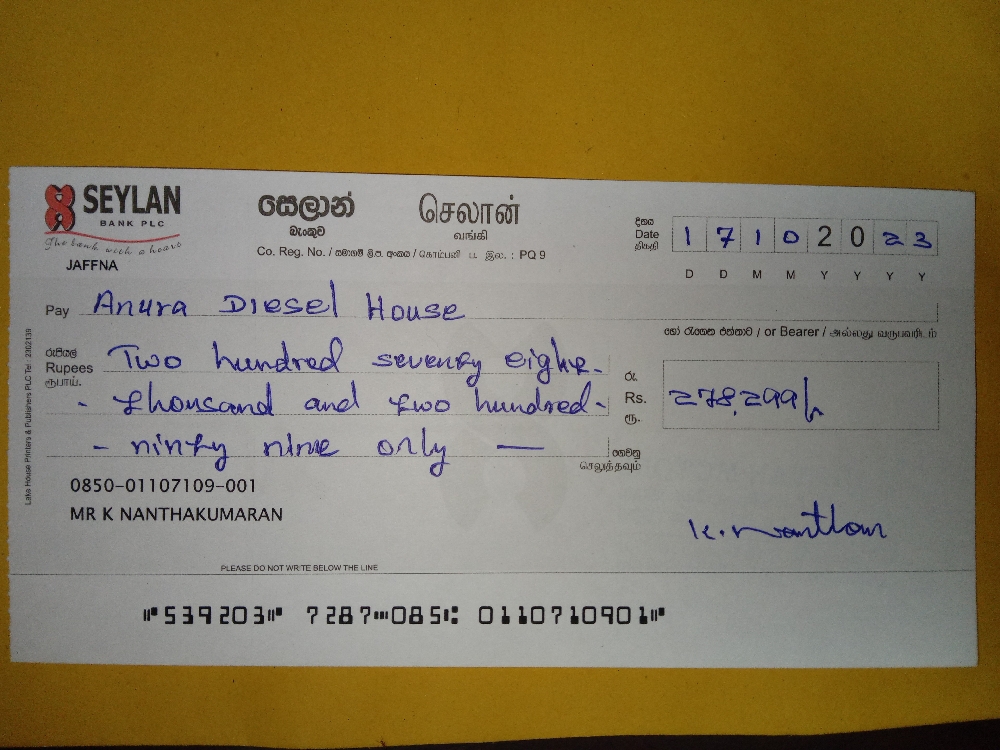 SEYLAN
BANK PLC
The bank with a heart
JAFFNA
සෙලාන්
බැංකුව
செலான்
வங்கி
Co. Reg. No. / සමාගම් ලි.ප. අංකය / கொம்பனி ப. இல. : PQ 9
දිනය
Date
திகதி
1 7 1 0 2 0 2 3
D D M M Y Y Y Y
Pay Anura Diesel House
හෝ රැගෙන එන්නාට / or Bearer / அல்லது வருபவரிடம்
රුපියල්
Rupees
ரூபாய்.
Two hundred seventy eight-
- thousand and two hundred-
- ninty nine only —
රු.
Rs.
ரூ.
278,299/-
ගෙවනු
செலுத்தவும்
0850-01107109-001
MR K NANTHAKUMARAN
K. Nanthan
PLEASE DO NOT WRITE BELOW THE LINE
⑈539203⑈ 7287⑉085⑆ 0110710901⑈
Lake House Printers & Publishers PLC Tel: 2302139